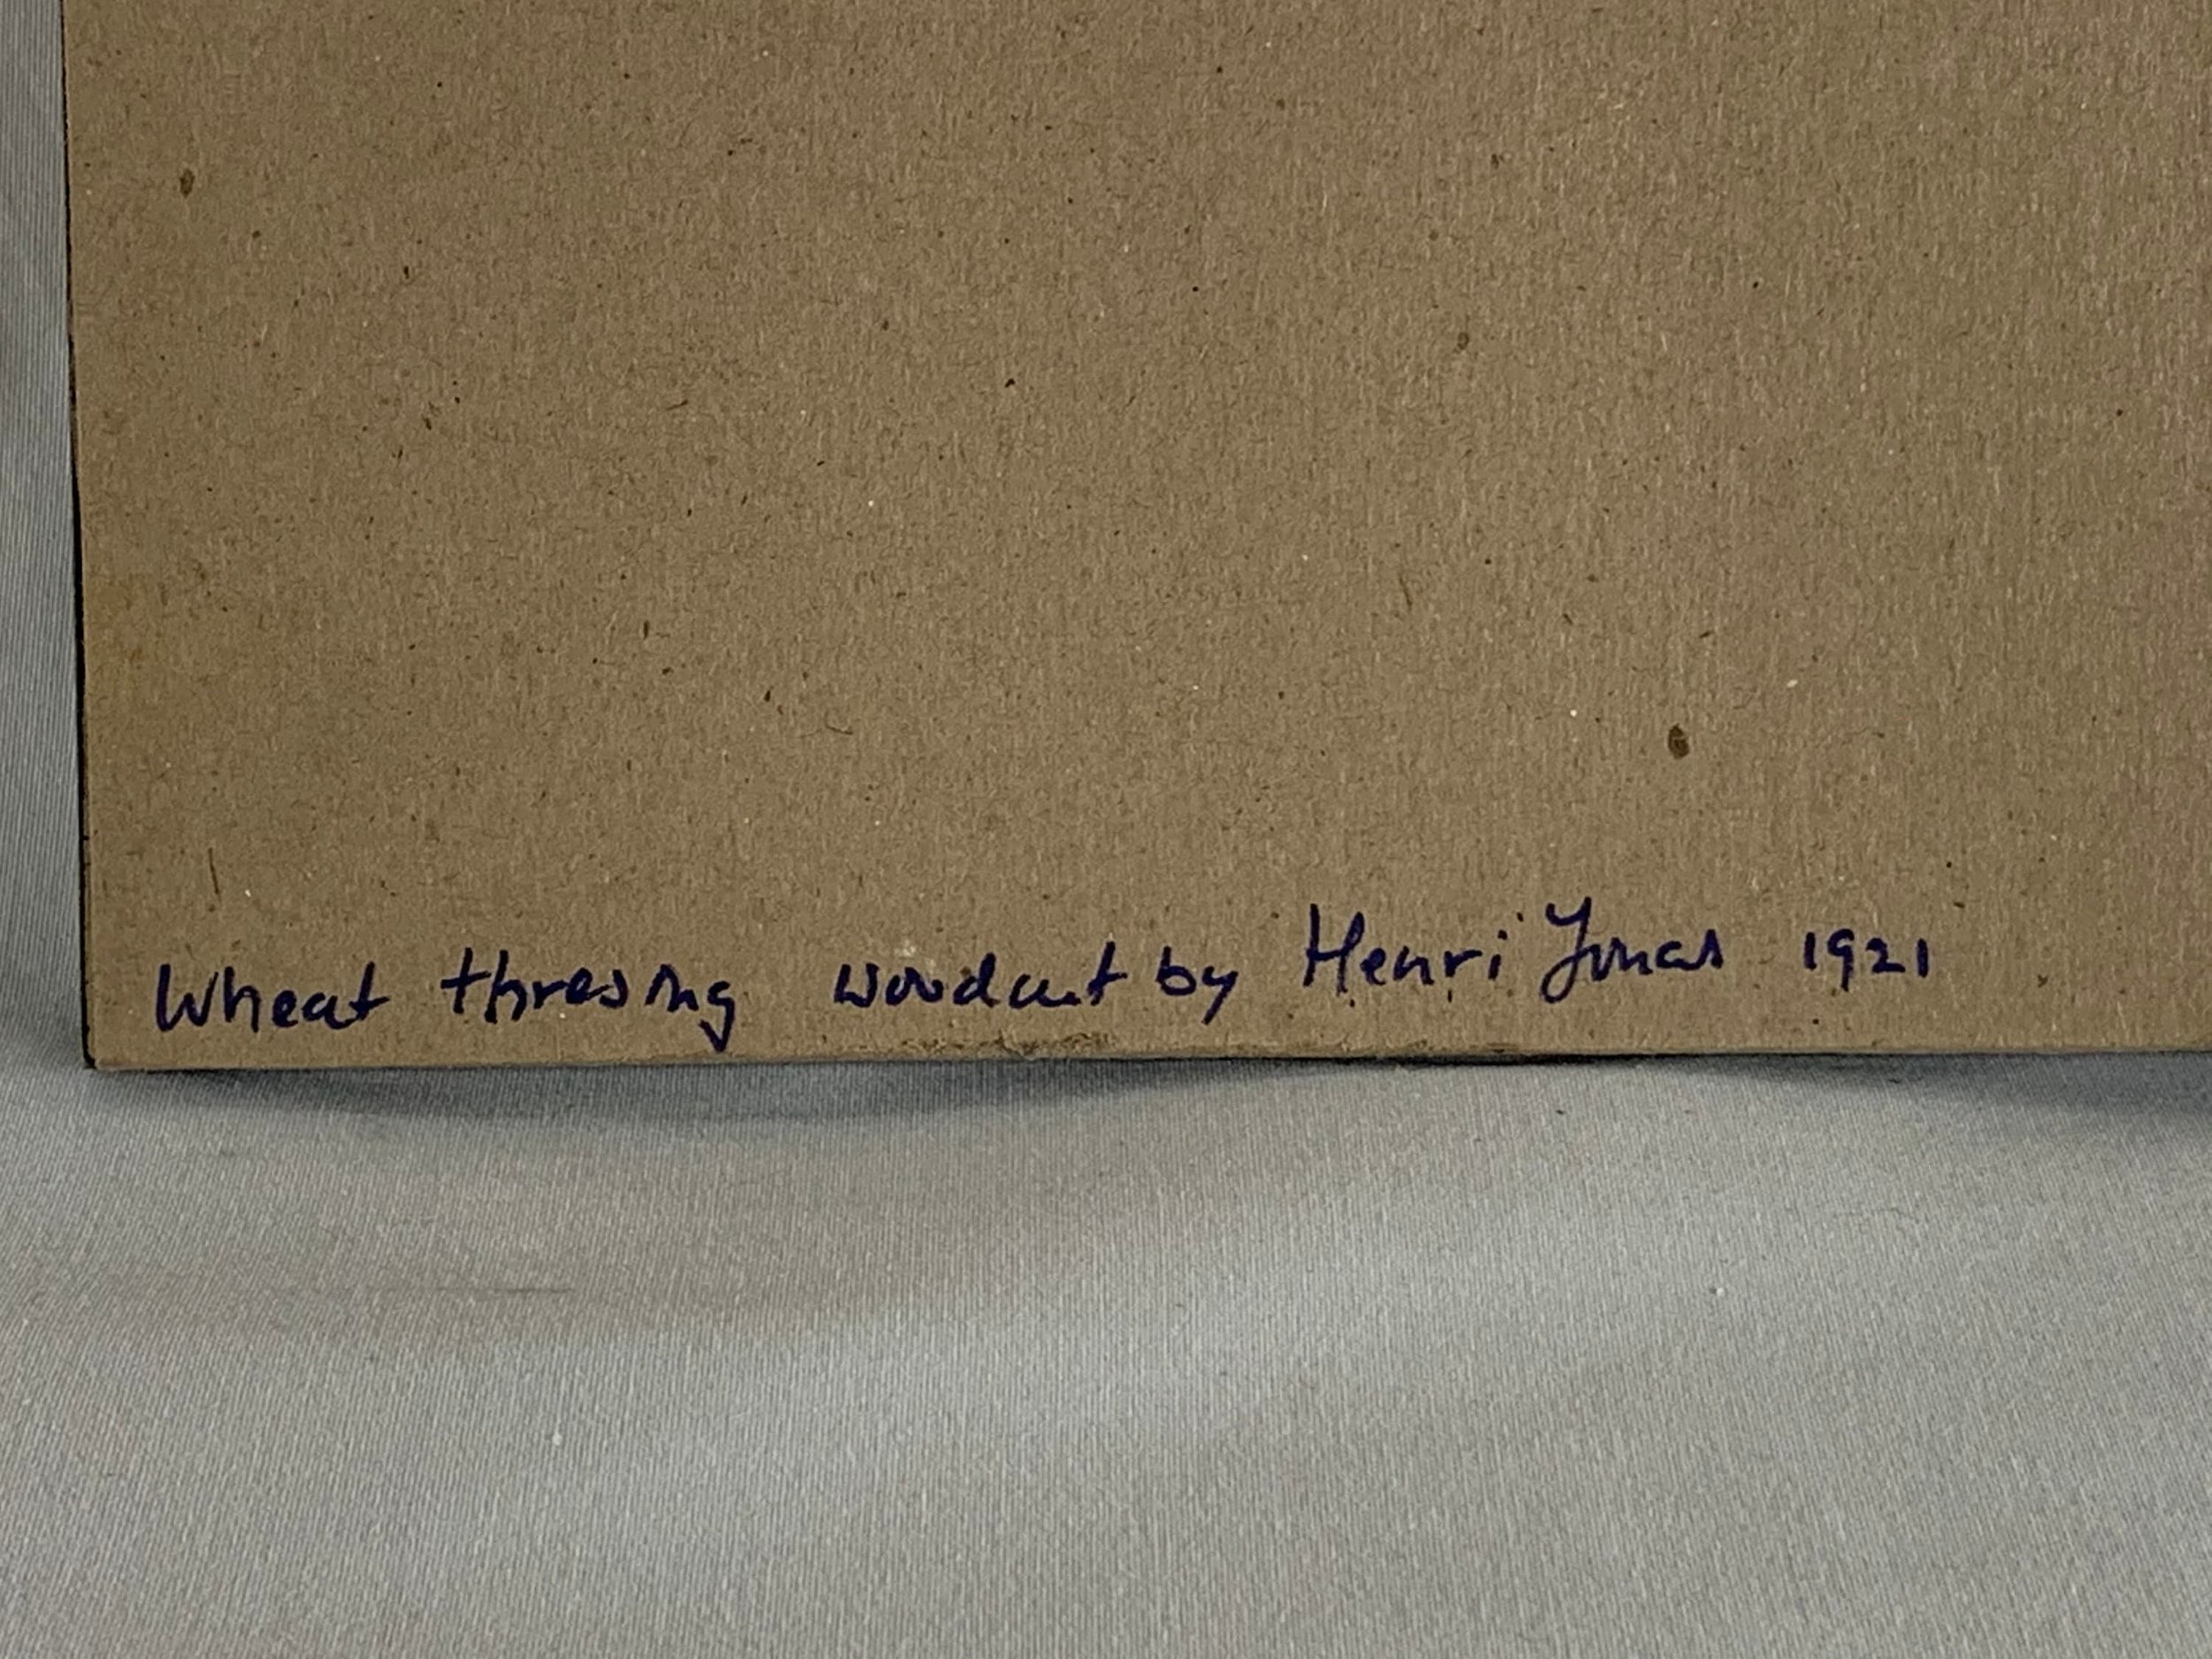 Wheat thresing woodcut by Henri Jonas 1921